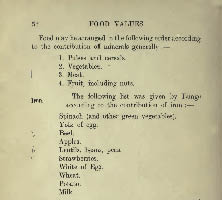 FOOD VALUES
Food may be arranged in the following order according
to the contribution of minerals generally :—
1. Pulses and cereals.
2. Vegetables.
3. Meat.
4. Fruit, including nuts.
Iron.
The following list was given by Bunge
according to the contribution of iron :—
Spinach (and other green vegetables).
Yolk of egg.
Beef.
Apples.
Lentils, beans, peas.
Strawberries.
White of Egg.
Wheat.
Potato.
Milk.